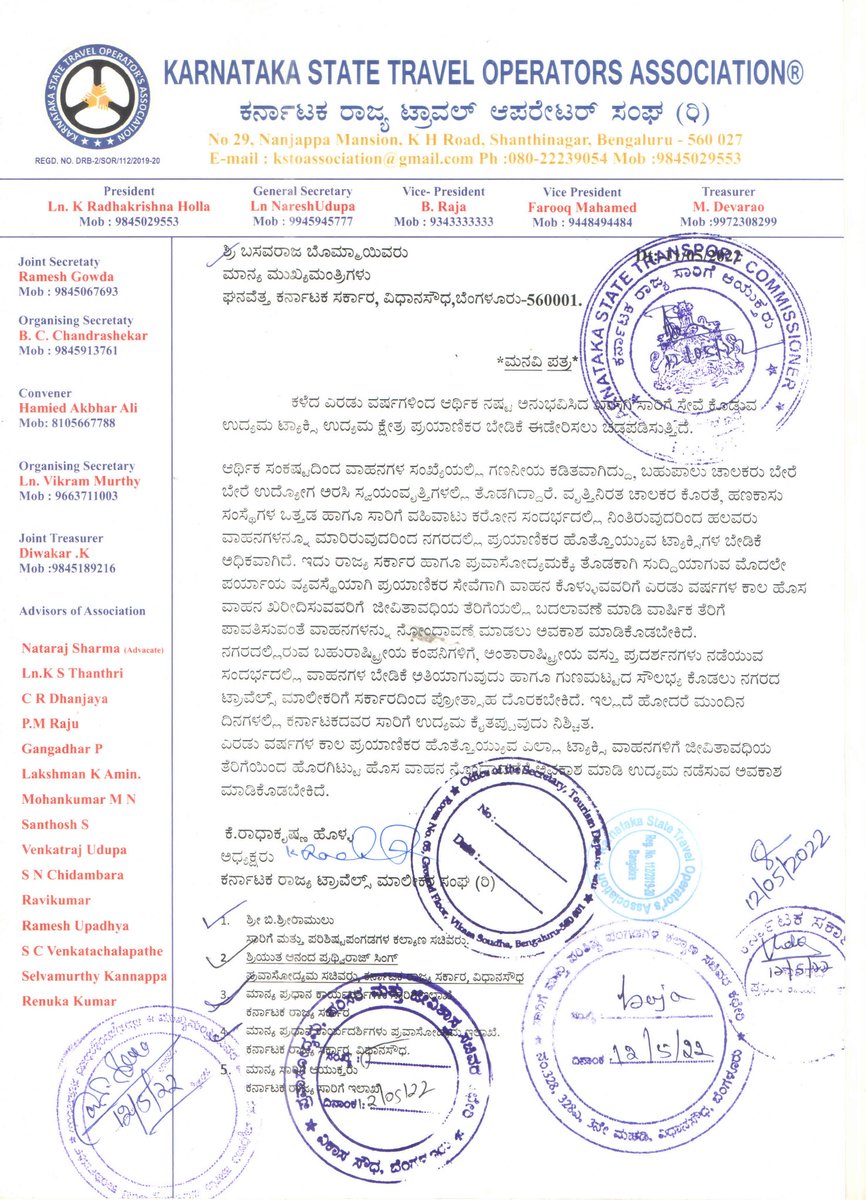 KARNATAKA STATE TRAVEL OPERATOR'S ASSOCIATION
REGD. NO. DRB-2/SOR/112/2019-20
KARNATAKA STATE TRAVEL OPERATORS ASSOCIATION®
ಕರ್ನಾಟಕ ರಾಜ್ಯ ಟ್ರಾವಲ್ ಆಪರೇಟರ್ ಸಂಘ (ರಿ)
No 29, Nanjappa Mansion, K H Road, Shanthinagar, Bengaluru - 560 027
E-mail : kstoassociation@gmail.com Ph :080-22239054 Mob :9845029553
President
Ln. K Radhakrishna Holla
Mob : 9845029553
General Secretary
Ln NareshUdupa
Mob : 9945945777
Vice- President
B. Raja
Mob : 9343333333
Vice President
Farooq Mahamed
Mob : 9448494484
Treasurer
M. Devarao
Mob :9972308299
Joint Secretaty
Ramesh Gowda
Mob : 9845067693
Organising Secretaty
B. C. Chandrashekar
Mob : 9845913761
Convener
Hamied Akbhar Ali
Mob: 8105667788
Organising Secretary
Ln. Vikram Murthy
Mob : 9663711003
Joint Treasurer
Diwakar .K
Mob :9845189216
Advisors of Association
Nataraj Sharma (Advacate)
Ln.K S Thanthri
C R Dhanjaya
P.M Raju
Gangadhar P
Lakshman K Amin.
Mohankumar M N
Santhosh S
Venkatraj Udupa
S N Chidambara
Ravikumar
Ramesh Upadhya
S C Venkatachalapathe
Selvamurthy Kannappa
Renuka Kumar
ಶ್ರಿ ಬಸವರಾಜ ಬೊಮ್ಮಾಯಿವರು
Dt: 11/05/2022
ಮಾನ್ಯ ಮುಖ್ಯಮಂತ್ರಿಗಳು
ಘನವೆತ್ತ ಕರ್ನಾಟಕ ಸರ್ಕಾರ, ವಿಧಾನಸೌಧ,ಬೆಂಗಳೂರು-560001.
KARNATAKA STATE TRANSPORT COMMISSIONER
ಕರ್ನಾಟಕ ರಾಜ್ಯ ಸಾರಿಗೆ ಆಯುಕ್ತರು
12/05/22
*ಮನವಿ ಪತ್ರ*
ಕಳೆದ ಎರಡು ವರ್ಷಗಳಿಂದ ಆರ್ಥಿಕ ನಷ್ಟ ಅನುಭವಿಸಿದ ಸಾರಿಗೆ ಸೇವೆ ಕೊಡುವ
ಉದ್ಯಮ ಟ್ಯಾಕ್ಸಿ ಉದ್ಯಮ ಕ್ಷೇತ್ರ ಪ್ರಯಾಣಿಕರ ಬೇಡಿಕೆ ಈಡೇರಿಸಲು ಚಡಪಡಿಸುತ್ತಿದೆ.
ಆರ್ಥಿಕ ಸಂಕಷ್ಟದಿಂದ ವಾಹನಗಳ ಸಂಖ್ಯೆಯಲ್ಲಿ ಗಣನೀಯ ಕಡಿತವಾಗಿದ್ದು, ಬಹುಪಾಲು ಚಾಲಕರು ಬೇರೆ
ಬೇರೆ ಉದ್ಯೋಗ ಅರಸಿ ಸ್ವಯಂವೃತ್ತಿಗಳಲ್ಲಿ ತೊಡಗಿದ್ದಾರೆ. ವೃತ್ತಿನಿರತ ಚಾಲಕರ ಕೊರತೆ, ಹಣಕಾಸು
ಸಂಸ್ಥೆಗಳ ಒತ್ತಡ ಹಾಗೂ ಸಾರಿಗೆ ವಹಿವಾಟು ಕರೋನ ಸಂದರ್ಭದಲ್ಲಿ ನಿಂತಿರುವುದರಿಂದ ಹಲವರು
ವಾಹನಗಳನ್ನೂ ಮಾರಿರುವುದರಿಂದ ನಗರದಲ್ಲಿ ಪ್ರಯಾಣಿಕರ ಹೊತ್ತೊಯ್ಯುವ ಟ್ಯಾಕ್ಸಿಗಳ ಬೇಡಿಕೆ
ಅಧಿಕವಾಗಿದೆ. ಇದು ರಾಜ್ಯ ಸರ್ಕಾರ ಹಾಗೂ ಪ್ರವಾಸೋದ್ಯಮಕ್ಕೆ ತೊಡಕಾಗಿ ಸುದ್ದಿಯಾಗುವ ಮೊದಲೇ
ಪರ್ಯಾಯ ವ್ಯವಸ್ಥೆಯಾಗಿ ಪ್ರಯಾಣಿಕರ ಸೇವೆಗಾಗಿ ವಾಹನ ಕೊಳ್ಳುವವರಿಗೆ ಎರಡು ವರ್ಷಗಳ ಕಾಲ ಹೊಸ
ವಾಹನ ಖರೀದಿಸುವವರಿಗೆ ಜೀವಿತಾವಧಿಯ ತೆರಿಗೆಯಲ್ಲಿ ಬದಲಾವಣೆ ಮಾಡಿ ವಾರ್ಷಿಕ ತೆರಿಗೆ
ಪಾವತಿಸುವಂತೆ ವಾಹನಗಳನ್ನು ನೋಂದಾವಣೆ ಮಾಡಲು ಅವಕಾಶ ಮಾಡಿಕೊಡಬೇಕಿದೆ.
ನಗರದಲ್ಲಿರುವ ಬಹುರಾಷ್ಟ್ರೀಯ ಕಂಪನಿಗಳಿಗೆ, ಅಂತಾರಾಷ್ಟ್ರೀಯ ವಸ್ತು ಪ್ರದರ್ಶನಗಳು ನಡೆಯುವ
ಸಂದರ್ಭದಲ್ಲಿ ವಾಹನಗಳ ಬೇಡಿಕೆ ಅತಿಯಾಗುವುದು ಹಾಗೂ ಗುಣಮಟ್ಟದ ಸೌಲಭ್ಯ ಕೊಡಲು ನಗರದ
ಟ್ರಾವೆಲ್ಸ್ ಮಾಲೀಕರಿಗೆ ಸರ್ಕಾರದಿಂದ ಪ್ರೋತ್ಸಾಹ ದೊರಕಬೇಕಿದೆ. ಇಲ್ಲದೆ ಹೋದರೆ ಮುಂದಿನ
ದಿನಗಳಲ್ಲಿ ಕರ್ನಾಟಕದವರ ಸಾರಿಗೆ ಉದ್ಯಮ ಕೈತಪ್ಪುವುದು ನಿಶ್ಚಿತ.
ಎರಡು ವರ್ಷಗಳ ಕಾಲ ಪ್ರಯಾಣಿಕರ ಹೊತ್ತೊಯ್ಯುವ ಎಲ್ಲಾ ಟ್ಯಾಕ್ಸಿ ವಾಹನಗಳಿಗೆ ಜೀವಿತಾವಧಿಯ
ತೆರಿಗೆಯಿಂದ ಹೊರಗಿಟ್ಟು ಹೊಸ ವಾಹನ ಅವಕಾಶ ಮಾಡಿ ಉದ್ಯಮ ನಡೆಸುವ ಅವಕಾಶ
ಮಾಡಿಕೊಡಬೇಕಿದೆ.
Office of the Secretary, Tourism
Room No. 08, Ground Floor, Vikasa Soudha, Bengaluru-560 001
No :
Date :
Karnataka State Travel Operator's Association
Reg No 112/2019-20
Bangalore
12/05/2022
ಕೆ.ರಾಧಾಕೃಷ್ಣ ಹೊಳ್ಳ
ಅಧ್ಯಕ್ಷರು
ಕರ್ನಾಟಕ ರಾಜ್ಯ ಟ್ರಾವೆಲ್ಸ್ ಮಾಲೀಕರ ಸಂಘ (ರಿ)
1. ಶ್ರೀ ಬಿ.ಶ್ರೀರಾಮುಲು
ಸಾರಿಗೆ ಮತ್ತು ಪರಿಶಿಷ್ಟಪಂಗಡಗಳ ಕಲ್ಯಾಣ ಸಚಿವರು.
2. ಶ್ರಿಯುತ ಆನಂದ ಪೃಥ್ವಿರಾಜ್ ಸಿಂಗ್
ಪ್ರವಾಸೋದ್ಯಮ ಸಚಿವರು, ಕರ್ನಾಟಕ ರಾಜ್ಯ ಸರ್ಕಾರ, ವಿಧಾನಸೌಧ
3. ಮಾನ್ಯ ಪ್ರಧಾನ
ಕರ್ನಾಟಕ ರಾಜ್ಯ ಸರ್ಕಾರ
4. ಮಾನ್ಯ ಪ್ರಧಾನ ಕಾರ್ಯದರ್ಶಿಗಳು
ಕರ್ನಾಟಕ ರಾಜ್ಯ ಸರ್ಕಾರ, ವಿಧಾನಸೌಧ.
5. ಮಾನ್ಯ ಸಾರಿಗೆ ಆಯುಕ್ತರು
ಕರ್ನಾಟಕ ರಾಜ್ಯ ಸಾರಿಗೆ ಇಲಾಖೆ
ದಿನಾಂಕ:
ವಿಕಾಸ ಸೌಧ,
ದಿನಾಂಕ 12/5/22
ನಂ.328, 328ಎ, 3ನೇ ಮಹಡಿ, ವಿಧಾನಸೌಧ, ಬೆಂಗಳೂರು
12/5/22
12/5/22